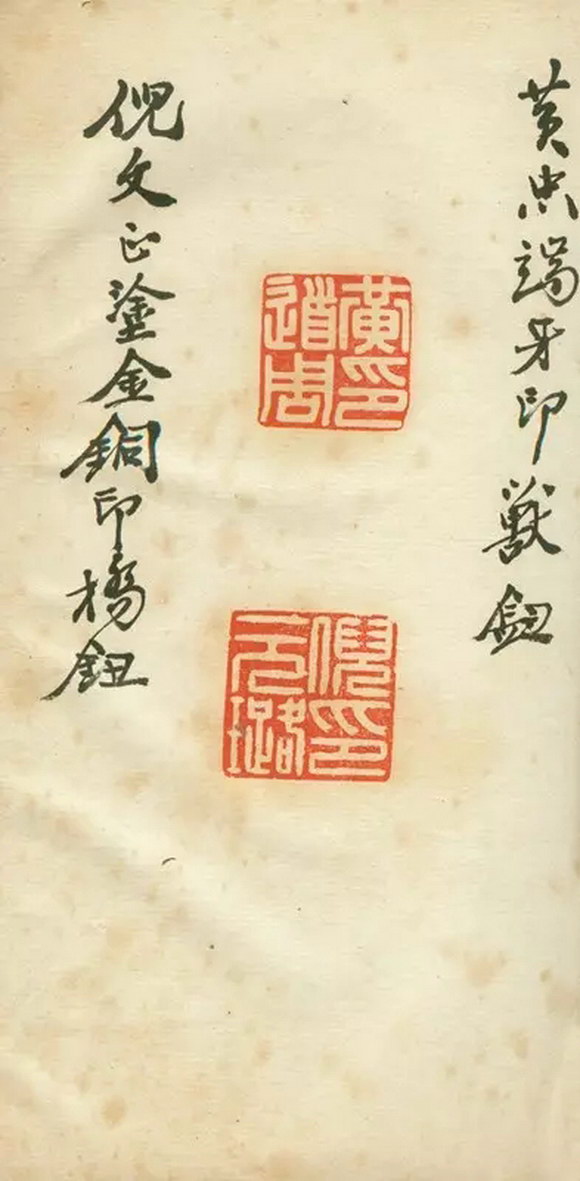 黃忠端牙印獸鈕
黃印道周
倪印元璐
倪文正塗金銅印橋鈕